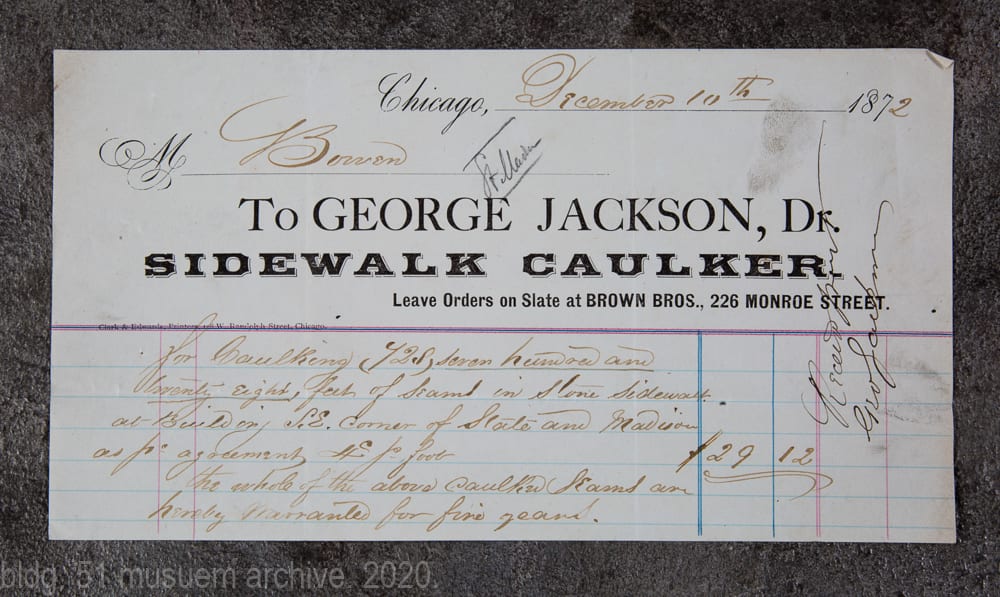 Chicago, December 10th 1872
M Bowen
St. & Madn
To GEORGE JACKSON, Dr.
SIDEWALK CAULKER.
Leave Orders on Slate at BROWN BROS., 226 MONROE STREET.
Clark & Edwards, Printers, W. Randolph Street, Chicago.
for Caulking 728, seven hundred and
twenty eight, feet of seams in stone sidewalk
at Building S.E. corner of State and Madison
as pr agreement 4c pr foot $29 12
the whole of the above caulked seams are
hereby warranted for five years.
Receivd paymt
Geo Jackson
bldg. 51 musuem archive. 2020.